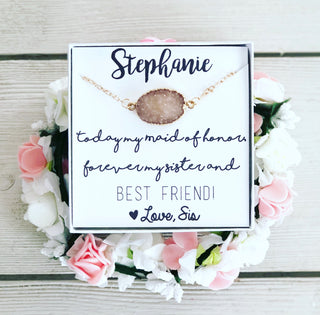 Stephanie
today my maid of honor,
forever my sister and
BEST FRIEND!
♥ Love, Sis